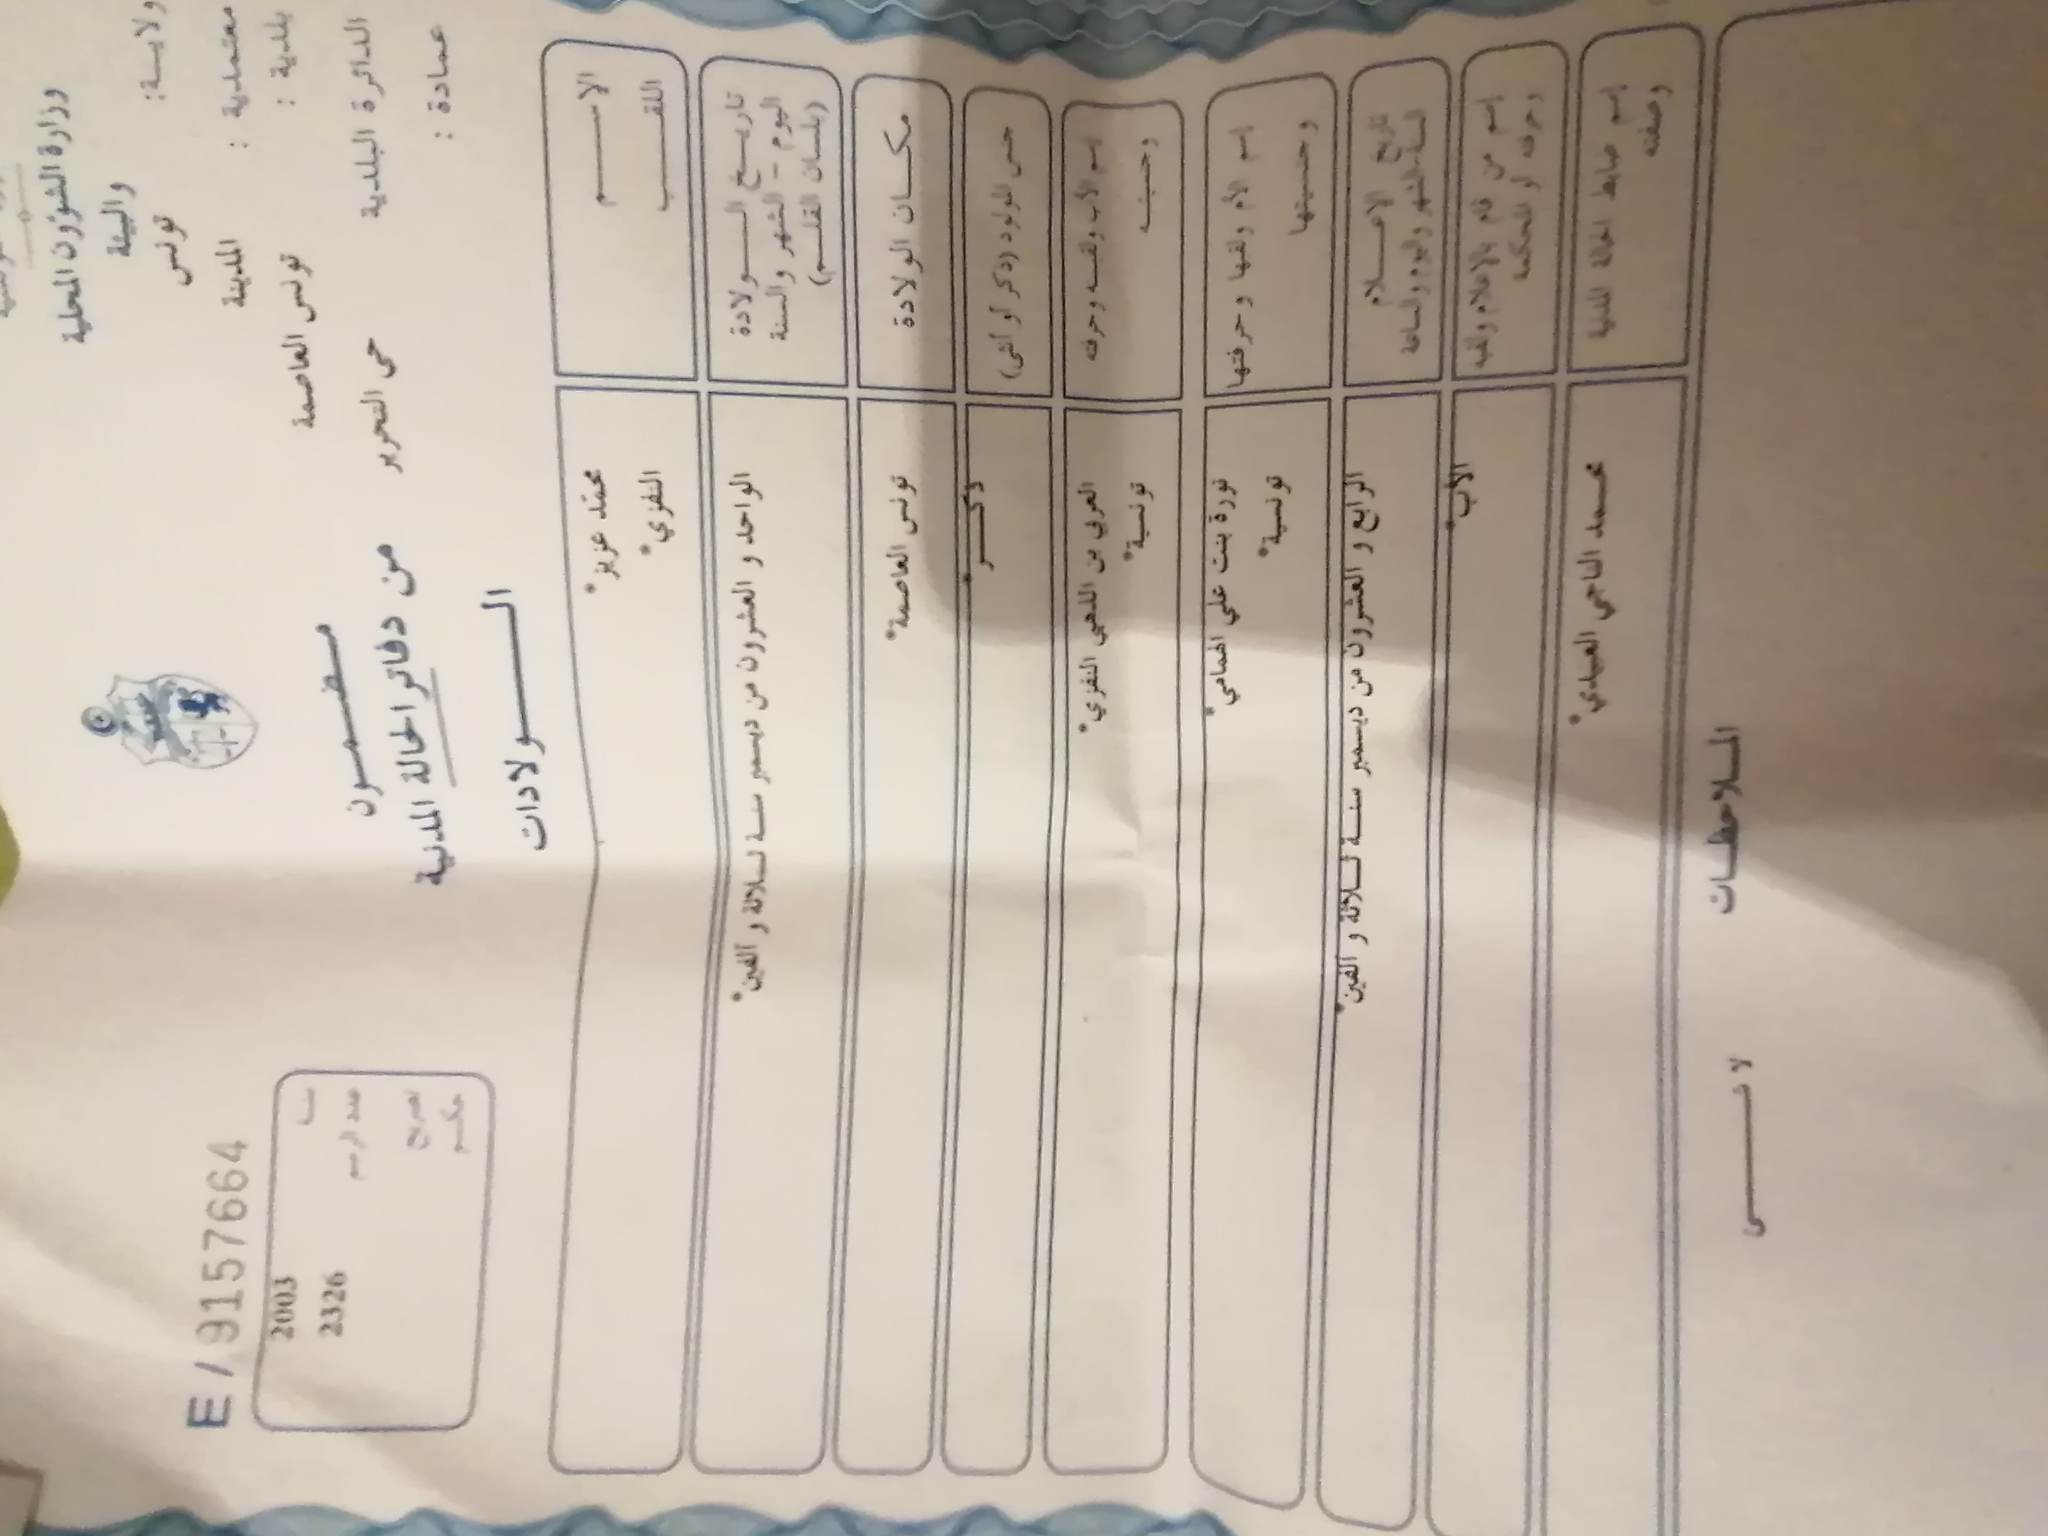 وزارة الشؤون المحلية
والبيئة
ولايــة: تونس
معتمدية : المدينة
بلدية : تونس العاصمة
الدائرة البلدية حي التحرير
عمادة :
E / 9157664
سنــة 2003
عدد الرسم 2326
تصريح
حكــم
مضمــون
من دفاتر الحالة المدنية
الــولادات
الاســـم محمّد عزيز°
اللقــب النفزي°
تاريــخ الــولادة
اليوم – الشهر والسنة
(بلسان القلــم)
الواحد و العشرون من ديسمبر سنـة ثـلاثة و ألفين°
مكــان الولادة تونس العاصمة°
جنس المولود (ذكر أو أنثى) ذكــر°
إسم الأب ولقبــه وحرفته العربي بن الذهبي النفزي°
وجنسيته تونسية°
إسم الأم ولقبها وحرفتها نورة بنت علي الهمامي°
وجنسيتها تونسية°
تاريخ الإعــلام
السنة الشهر واليوم والساعة
الرابع و العشرون من ديسمبر سنـة ثـلاثة و ألفين°
إسم من قام بالإعلام ولقبه
وحرفته أو المحكمة
الأب°
إسم ضابط الحالة المدنية محــمد الناجي العبيدي°
وصفته
المــلاحظــات
لا شـــــئ